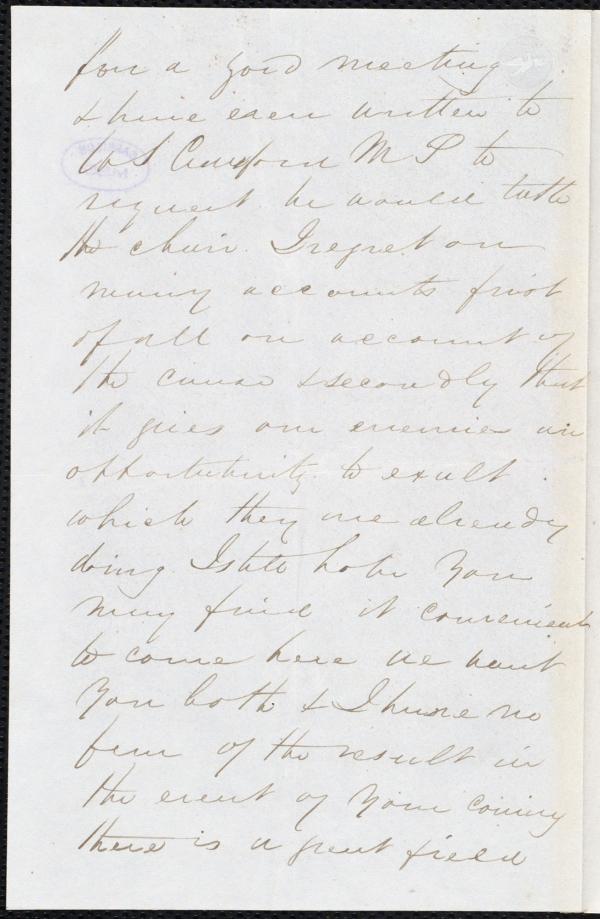 for a good meeting
& have even written to
W S Crawford M P to
request he would take
the chair. I regret on
many accounts first
of all on account of
the cause & secondly that
it gives our enemies an
opportutunity to exult
which they are already
doing I still hope you
may find it convenient
to come here we want
you both & I have no
fear of the result in
the event of your coming
there is a great field